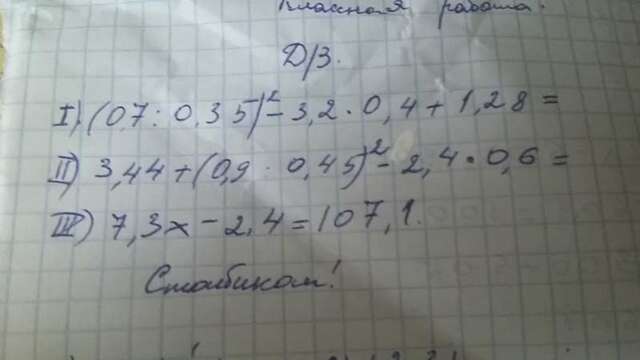 Классная работа.
Д/З.
I) (0,7 : 0,35)² - 3,2 · 0,4 + 1,28 =
II) 3,44 + (0,9 : 0,45)² - 2,4 · 0,6 =
III) 7,3x - 2,4 = 107,1.
Столбиком!